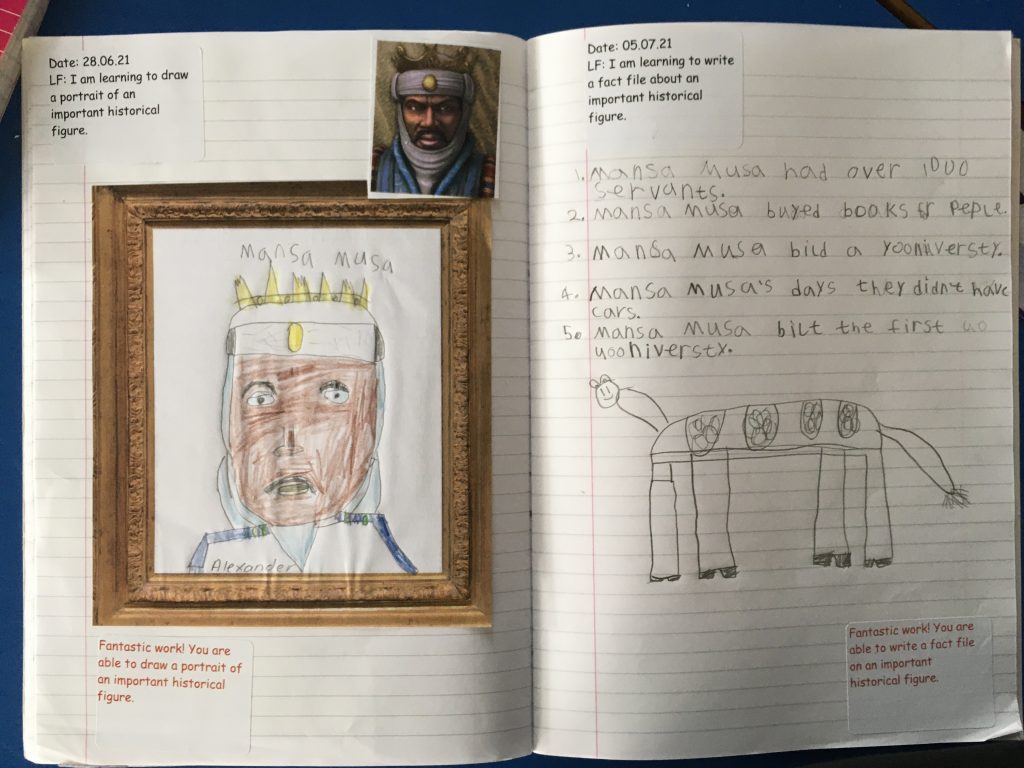 Date: 28.06.21
LF: I am learning to draw
a portrait of an
important historical
figure.
Mansa Musa
Alexander
Fantastic work! You are
able to draw a portrait of
an important historical
figure.
Date: 05.07.21
LF: I am learning to write
a fact file about an
important historical
figure.
1. Mansa Musa had over 1000
servants.
2. Mansa Musa buyed books fr peple.
3. Mansa Musa bild a yooniversty.
4. Mansa Musa's days they didn't have
cars.
5. Mansa Musa bilt the first uo
uooniversty.
Fantastic work! You are
able to write a fact file
on an important
historical figure.